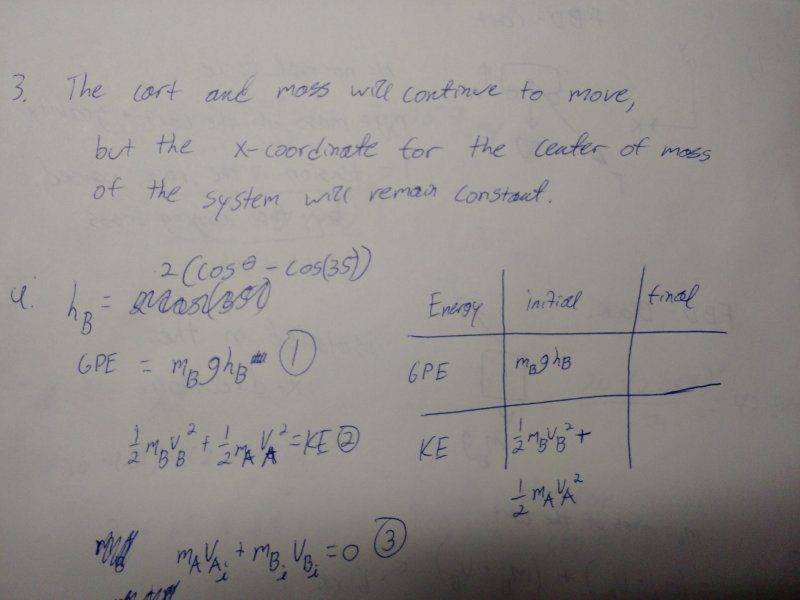 3. The cart and mass will continue to move,
but the x-coordinate for the center of mass
of the system will remain constant.
2(cosθ - cos(35))
4. h_B =
GPE = m_B g h_B ①
½ m_B V_B² + ½ m_A V_A² = KE ②
m_A V_{A_i} + m_{B_i} V_{B_i} = 0 ③
Energy initial final
GPE m_B g h_B
KE ½ m_B V_B² +
½ m_A V_A²